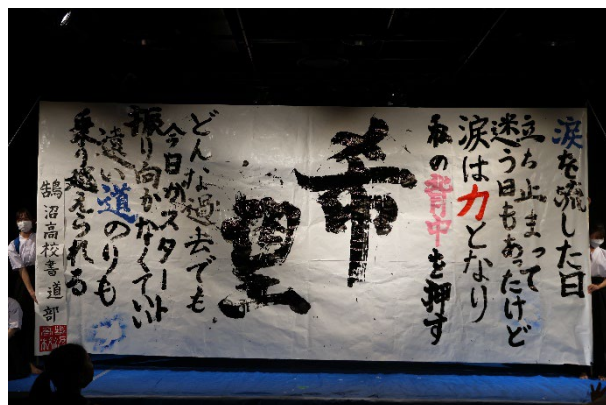 涙を流した日
立ち止まって
迷う日もあったけど
涙は力となり
私の背中を押す
希望
どんな過去でも
今日がスタート
振り向かなくていい
遠い道のりも
乗り越えられる
鵠沼高校書道部